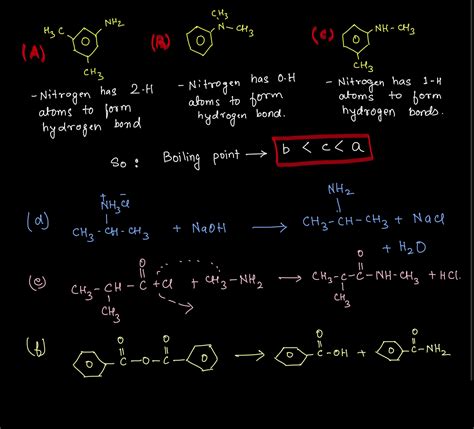 (A) H3C NH2 CH3
(B) CH3 N-CH3
(C) NH-CH3 CH3
- Nitrogen has 2-H atoms to form hydrogen bond
- Nitrogen has 0-H atoms to form hydrogen bond.
- Nitrogen has 1-H atoms to form hydrogen bonds.
So : Boiling point → b < c < a
(d) CH3-CH-CH3 + NaOH → CH3-CH-CH3 + NaCl
+ - NH3Cl NH2
+ H2O
(e) CH3-CH-C+Cl + CH3-NH2 → CH3-C-C-NH-CH3 + HCl.
O O
CH3 CH3
(f) C-O-C → C-OH + C-NH2
O O O O